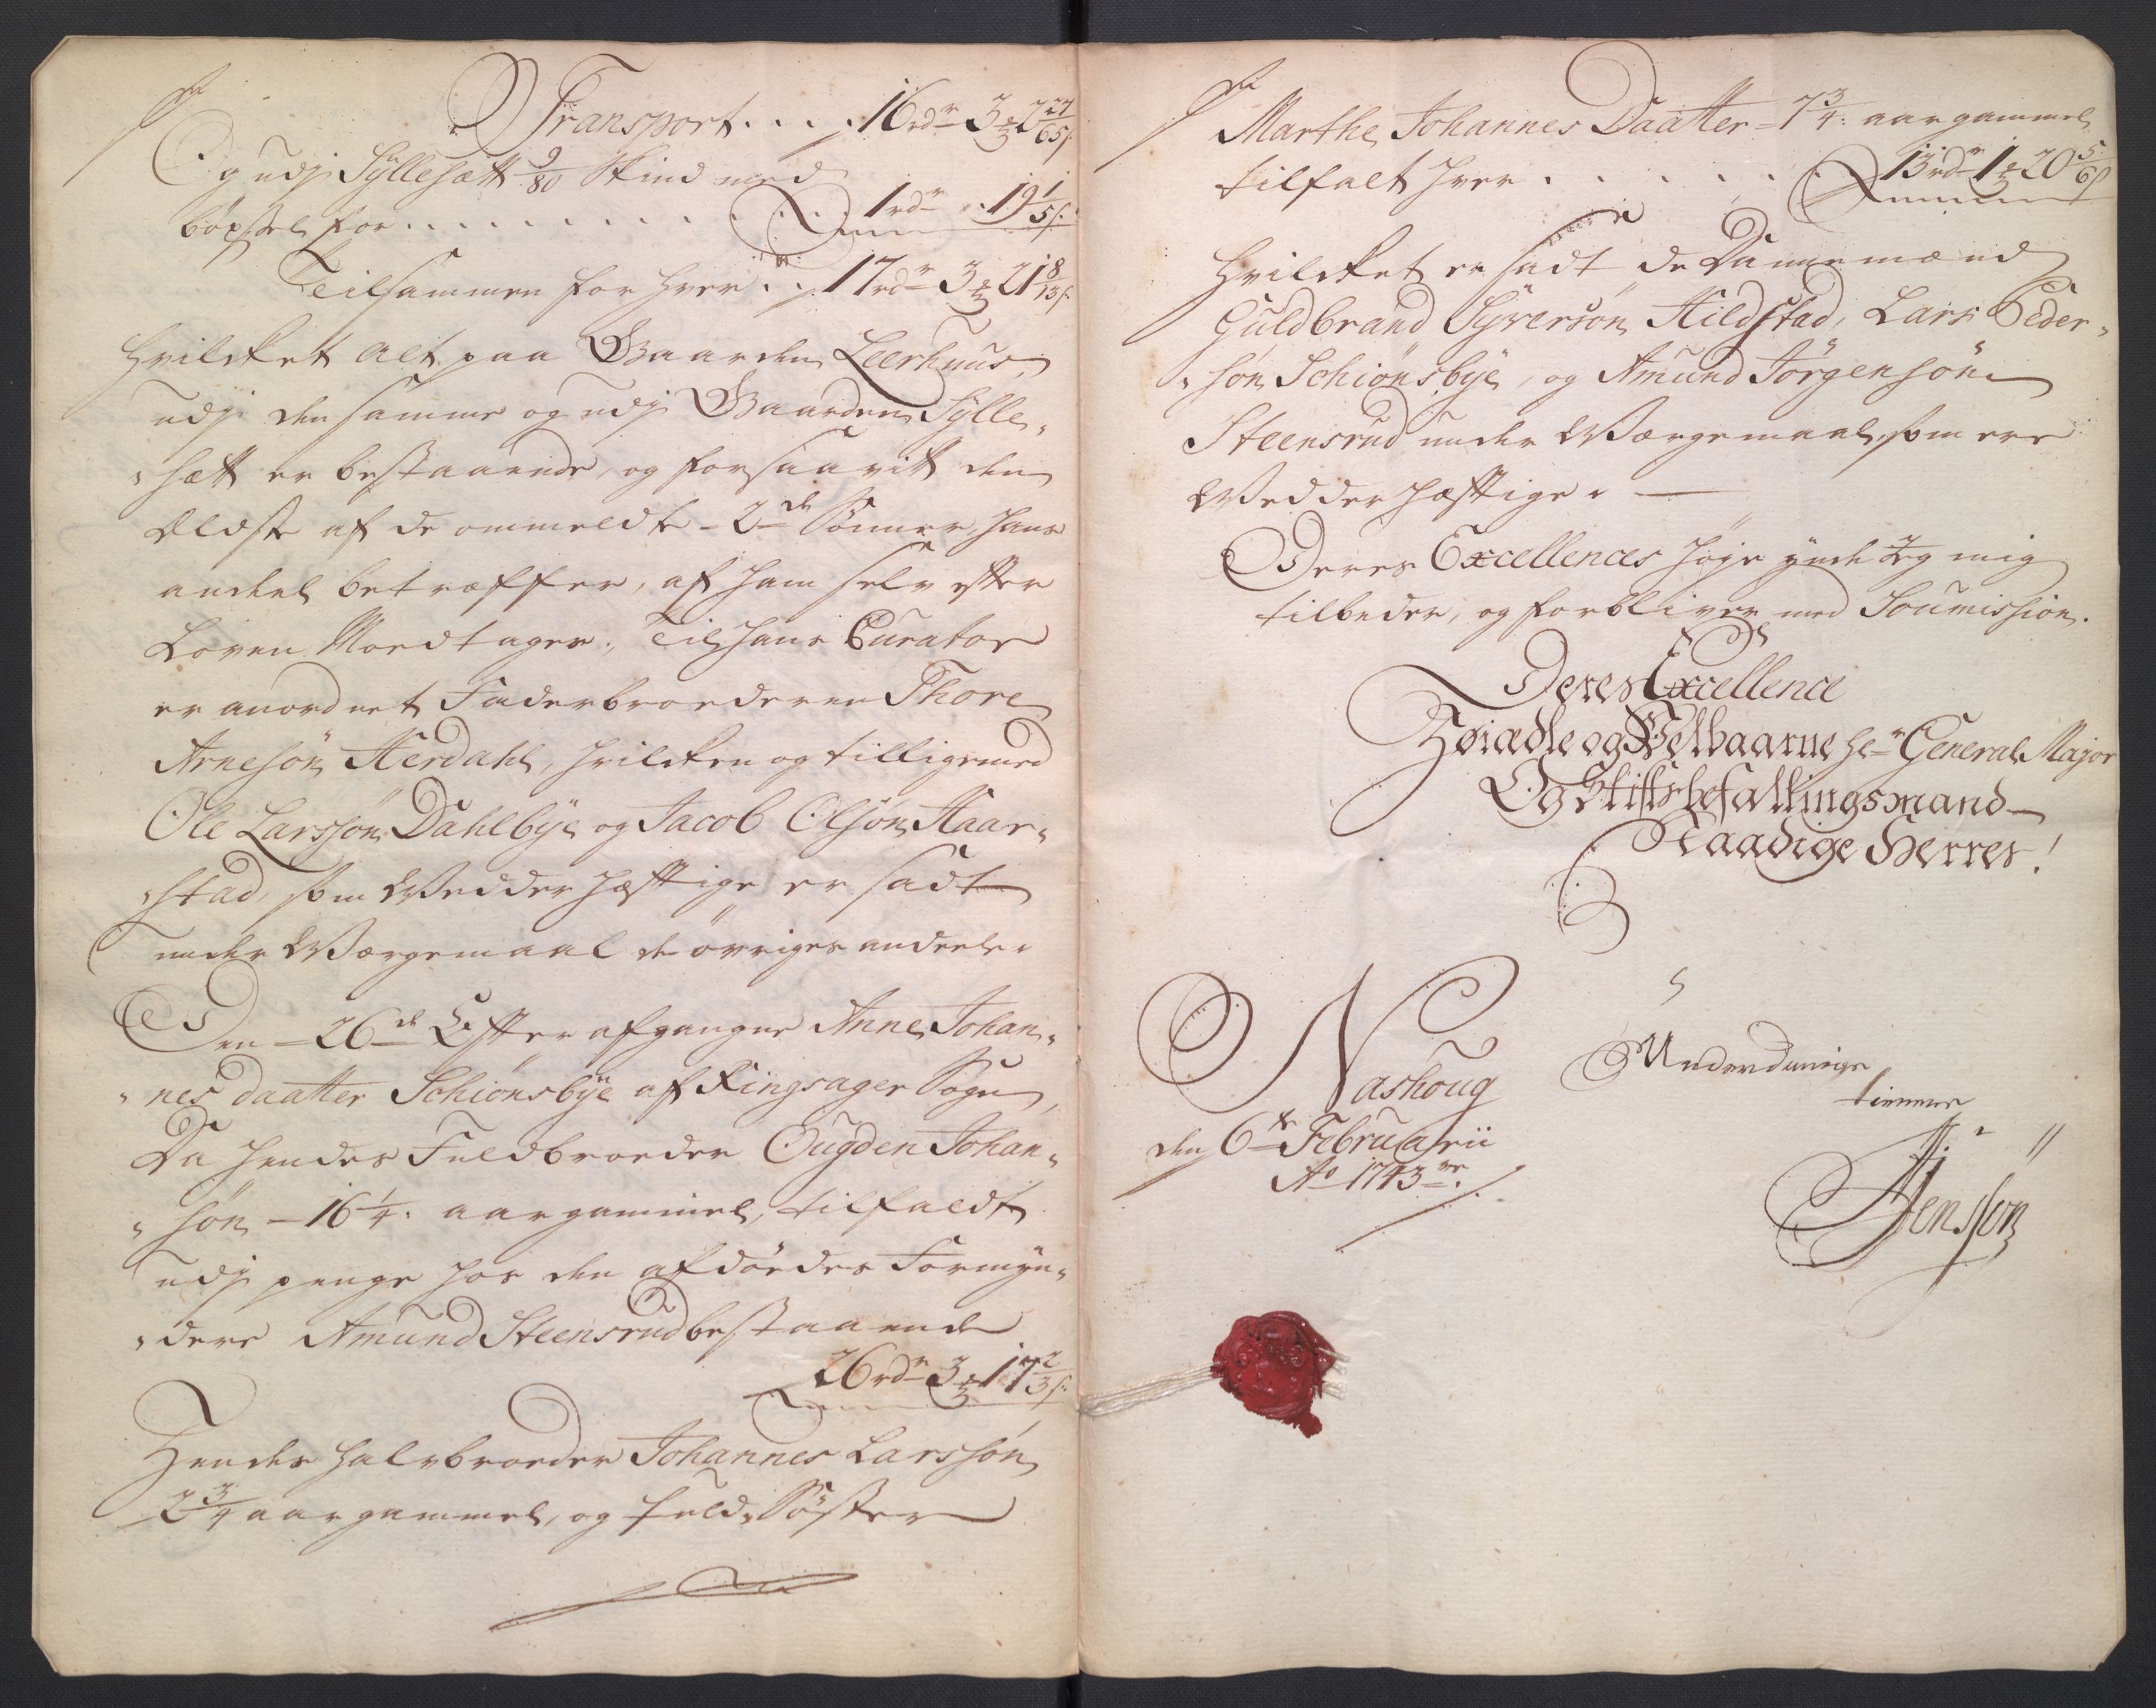 Transport . . . . 16 rdr 3 ℔ 2 27/65 s.
Og udj Syllesætt 9/80 Skind med
böxsel for . . . . . . . . . 1 rdr . . 19 1/5 s.
Tilsammen for hver . . 17 rdr 3 ℔ 21 8/13 s.
Hvilcket alt paa Gaarden Leerhuus,
udj den samme og udj Gaarden Sylle,,
,,sætt er bestaaende, og forsaavitt den
Eldste af de ommeldte – 2de Sönner, hans
andeel betræffer, af ham selv efter
Loven Modtages. Til hans Curator
er anordnet Faderbroederen Thore
Arnesön Herdahl, hvilcken og tilligemed
Ole Larssön Dahlbye og Jacob Olsön Haar,,
,,stad, som Vedderhæftige er sadt
under Værgemaal de övriges andeele.
Den – 26de Efter afgangne Anne Johan,,
,,nes daatter Schiönsbye af Ringsager Sogn,
Da hendes Fuldbroeder Ougden Johan,,
,,sön – 16 1/4: aar gammel, tilfaldt
udj penge hos den afdödes Formyn,,
,,dere Amund Steensrud bestaaende
26 rdr 3 ℔ 17 2/3 s.
Hendes halvbroeder Johannes Larssön
2 3/4 aar gammel, og fuld Söster
Marthe Johannes Daatter – 7 3/4: aar gammel
tilfalt hver . . . . . . 13 rdr 1 ℔ 20 5/6 s
Hvilcket er sadt de Dannemænd
Guldbrand Syversön Hildstad, Lars Peder,,
,,sön Schiönsbye, og Amund Jörgensön
Steensrud under Værgemaal, som ere
Vedderhæftige. —
Deres Excellences höje ynde Jeg mig
tilbeder, og forbliver med Soumission.
Deres Excellence
Höiædle og Velbaarne Hr General Major
Og Stiftsbefallingsmand
Naadige Herres!
Nashoug
den 6te Februarii
Ao 1743.
Underdanige
tienner
Jensson